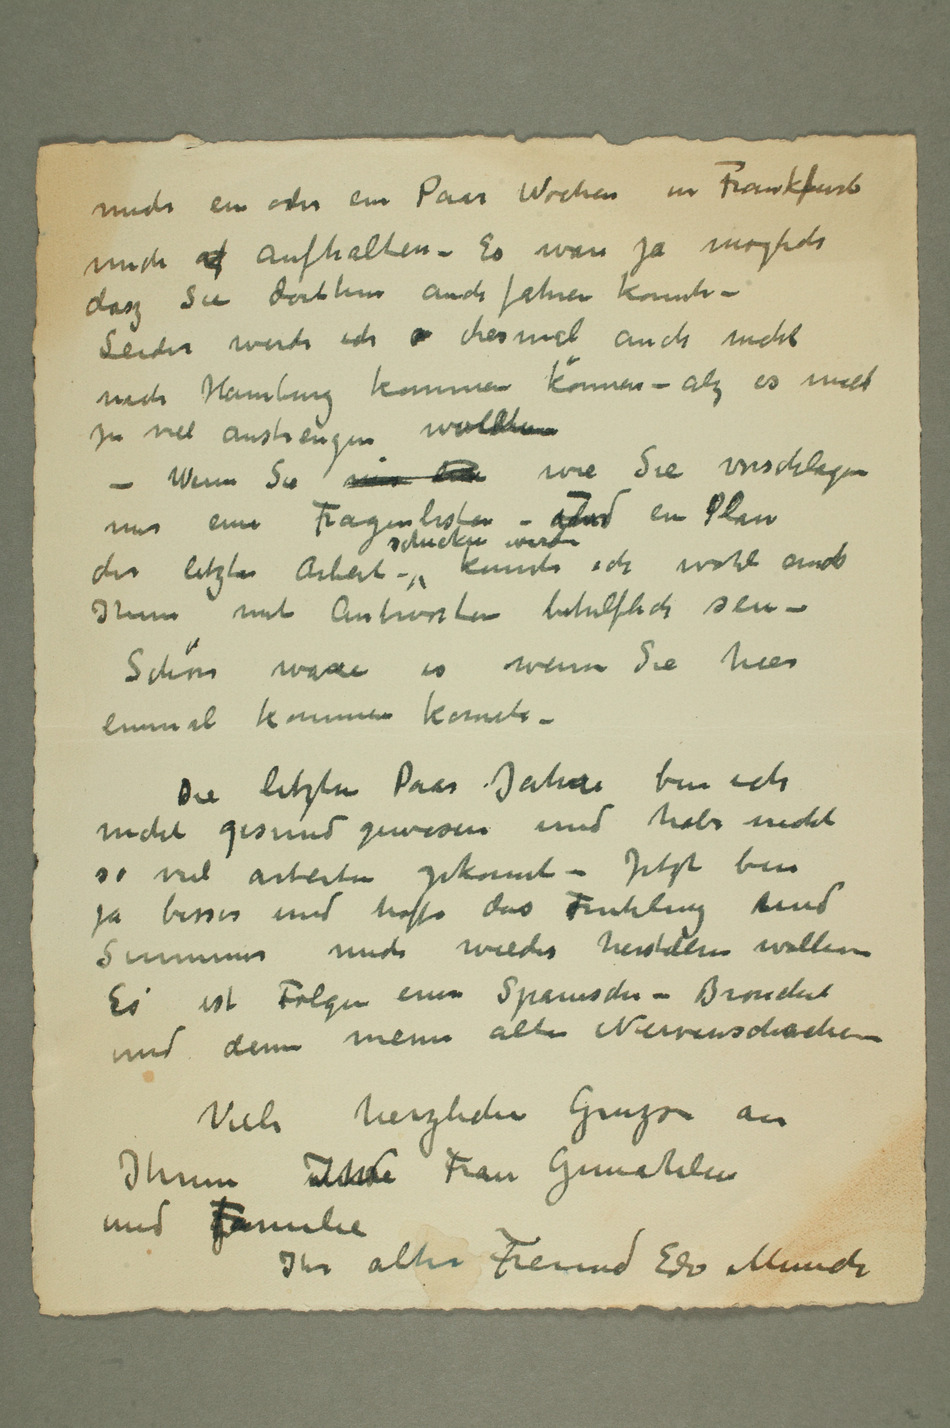 mich ein oder ein Paar Wochen in Frankfurt
mich aufhalten – Es ware ja moglich
dasz Sie dorthin auch fahren konnte –
Leider werde ich diesmal auch nicht
nach Hamburg kommen können – alz es mich
zu viel anstrengen wollten
– Wenn Sie wie Sie vorschlagen
mir eine Fragenliste – und ein Plan
der letzte Arbeit – schicken werde kunnte ich wohl auch
Ihnen mit Antworten behilflich sein –
Schön ware es wenn Sie hier
einmal kommen konnte –
Die letzten Paar Jahre bin ich
nicht gesund gewesen und habe nicht
so viel arbeiten gekonnt – Jetzt bin
ja besser und hoffe das Fruhling und
Summer mich wieder herstellen wollen
Es ist Folgen einer Spanischen – Bronchit
und denn meine alte Nervenschachen
Viele herzliche Gruzse an
Ihren Frau Gemahlin
und Familie
Ihr alter Freund Edv Munch